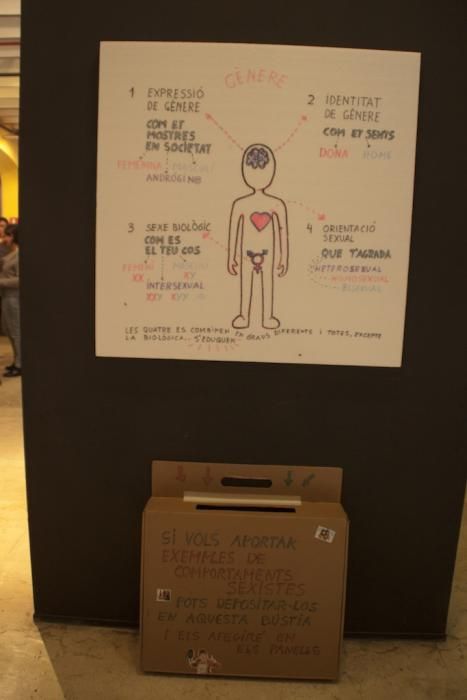 GÈNERE
1 EXPRESSIÓ
DE GÈNERE
COM ET
MOSTRES
EN SOCIETAT
FEMENINA MASCULÍ
ANDRÒGIN@
2 IDENTITAT
DE GÈNERE
COM ET SENTS
DONA HOME
3 SEXE BIOLÒGIC
COM ES
EL TEU COS
FEMENÍ MASCULÍ
XX XY
INTERSEXUAL
XXY XYY
4 ORIENTACIÓ
SEXUAL
QUE T'AGRADA
HETEROSEXUAL
HOMOSEXUAL
BISEXUAL
LES QUATRE ES COMBINEN EN GRAUS DIFERENTS I TOTES, EXCEPTE
LA BIOLÒGICA... S'EDUQUEN
SI VOLS APORTAR
EXEMPLES DE
COMPORTAMENTS
SEXISTES
POTS DEPOSITAR-LOS
EN AQUESTA BÚSTIA
I ELS AFEGIRÉ EN
ELS PANELLS